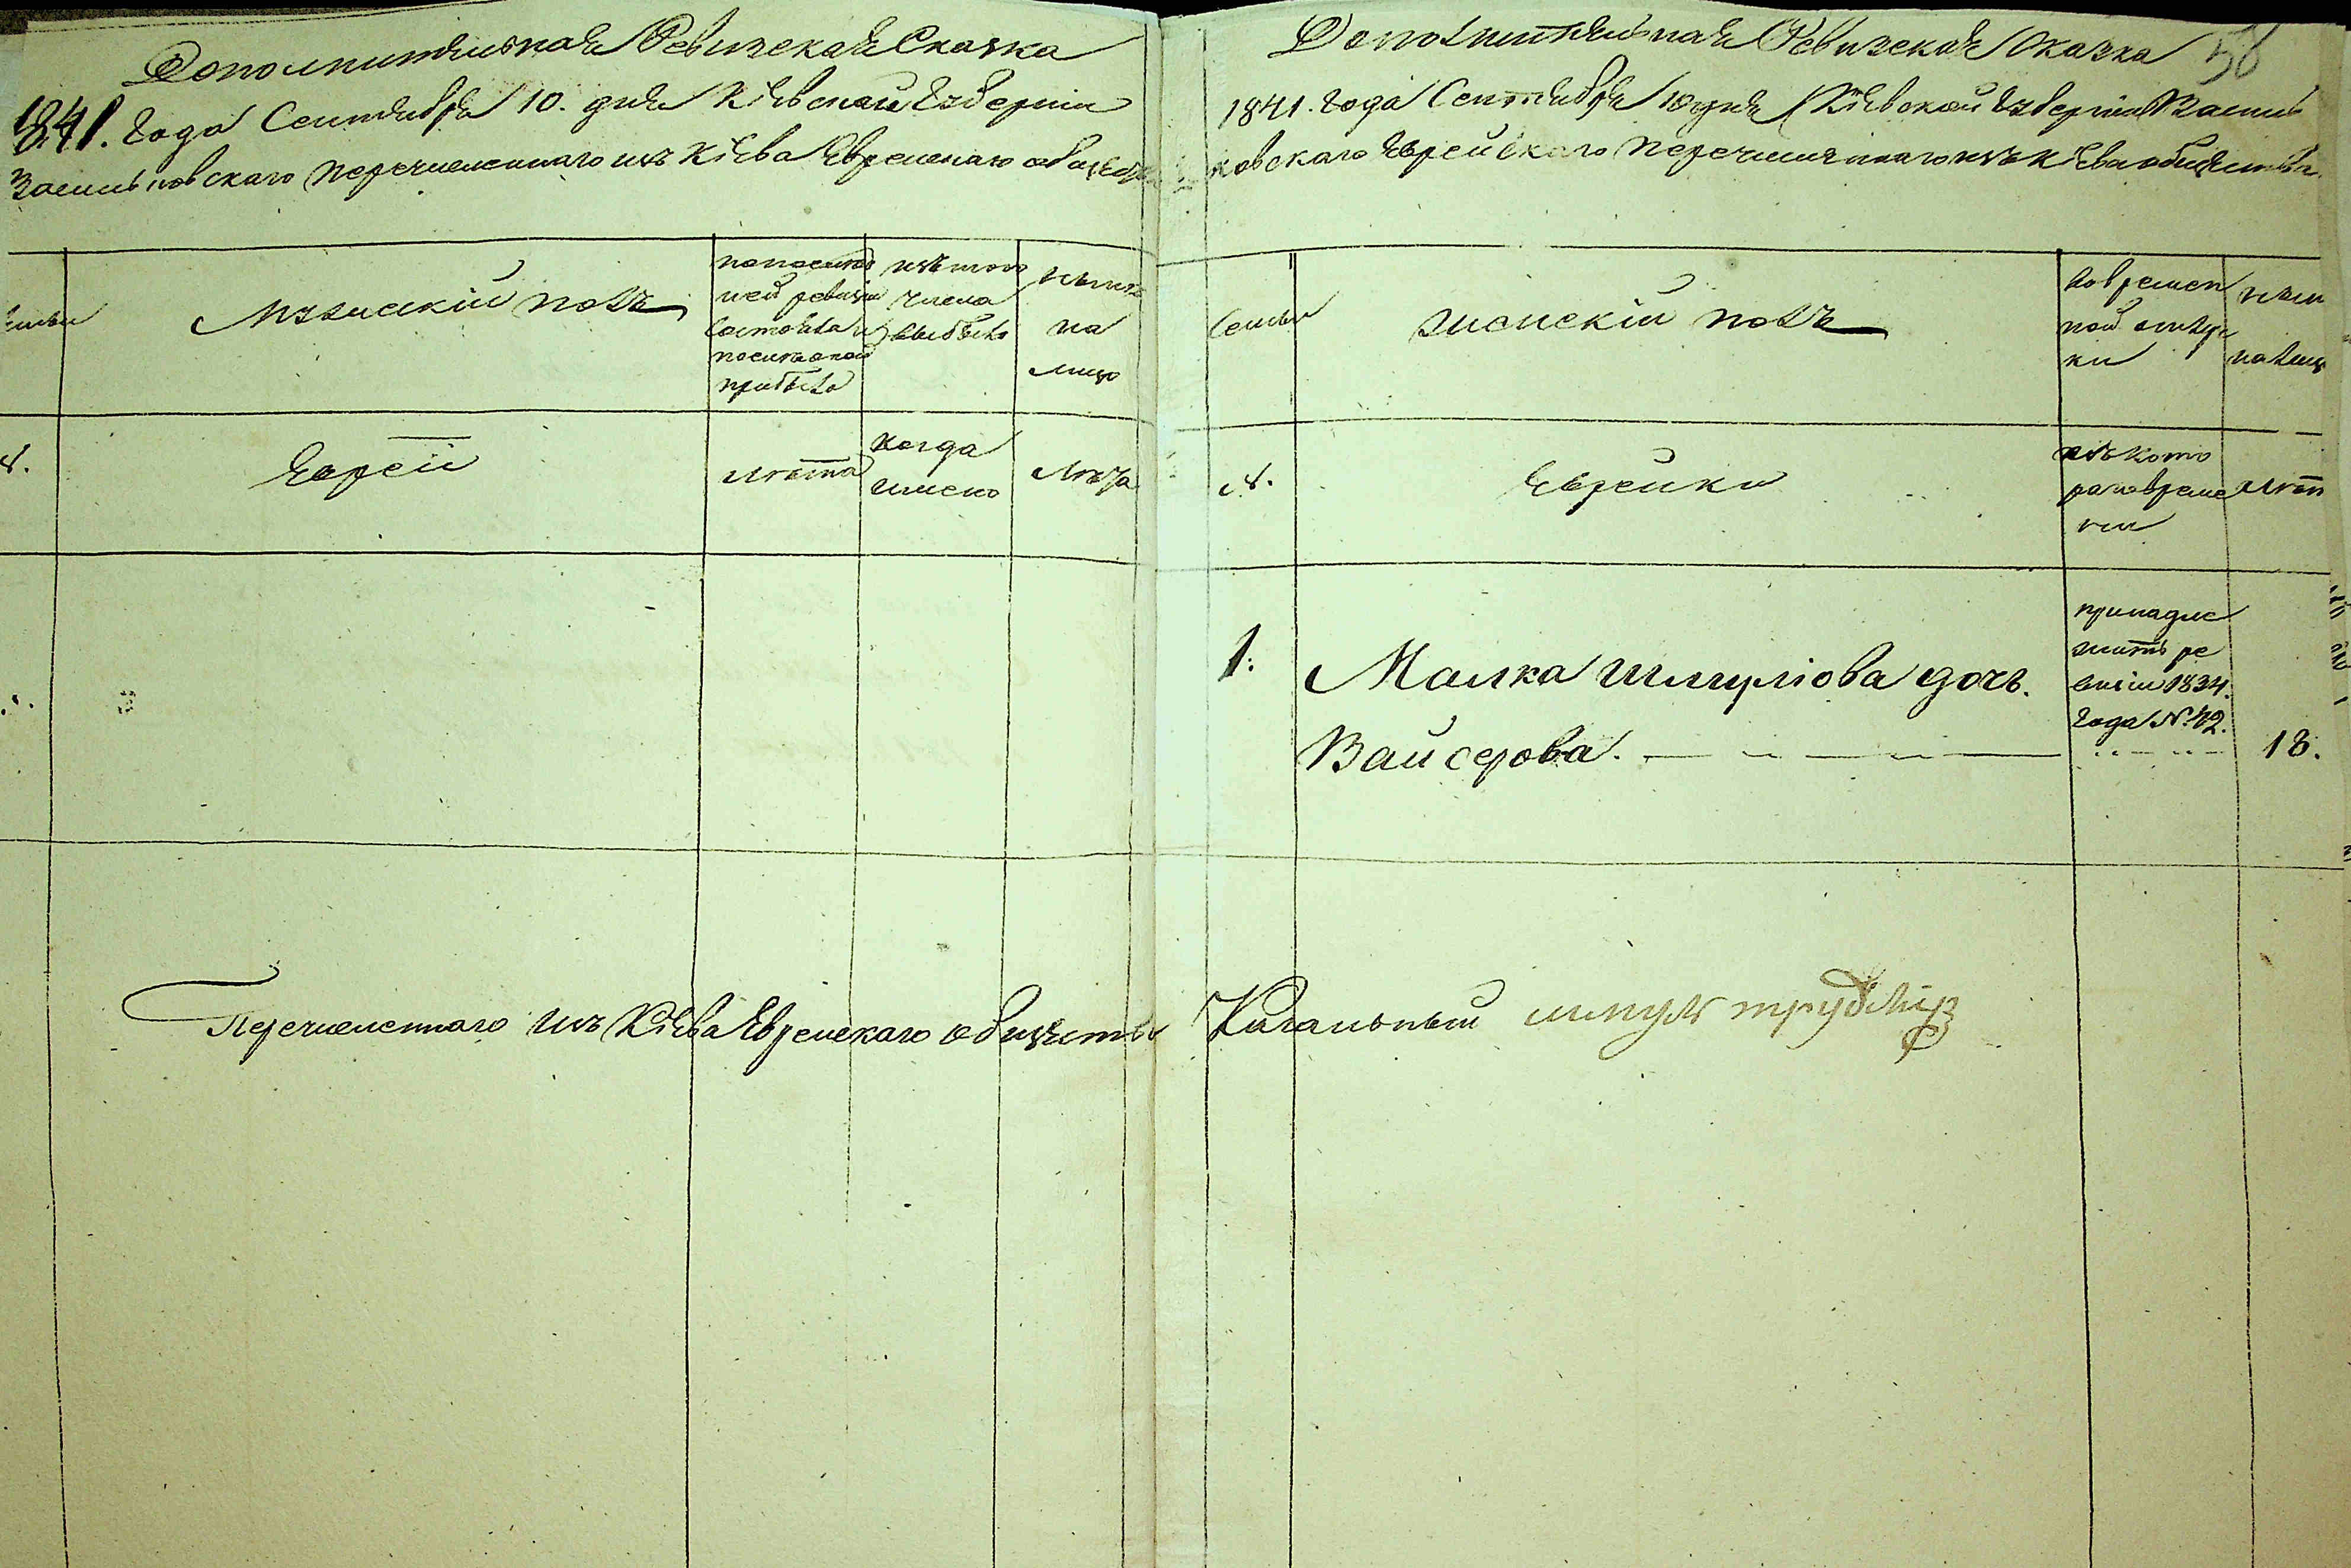 Дополнителная Ревизская Сказка
1841. года Сентября 10. дня Кіевской Губерніи
Васильковскаго перечисленнаго изъ Кіева Еврейскаго общества
Мужескій полъ
по послед
ней ревизіи
состояло и
после оной
прибыло
изъ того
числа
выбыло
ныне
на
лицо
Евреи
лета
когда
имено
лета
Перечисленнаго изъ Кіева Еврейскаго общества
Дополнителная Ревизская Сказка
1841. года Сентября 10 дня Кіевской Губерніи Василь
ковскаго Еврейскаго перечисленнаго изъ Кіева общества
Семьи
женскій полъ
во времен
ной отлуч
ки
ныне
на лицо
№.
Еврейки
изъ кото
раго време
ни
лет
1.
Малка Шмулiова дочь.
Вайсерова.
принадле
жить ре
визіи 1834.
года №
18.
Кагальный шмуль